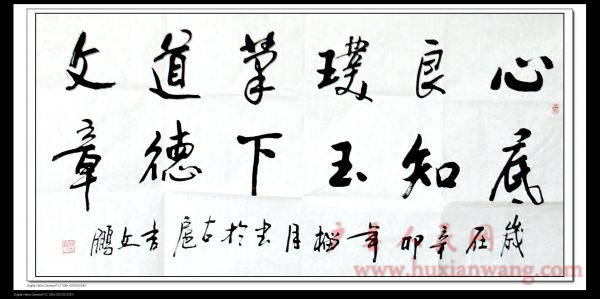 心底
良知
璞玉
筆下
道德
文章
歲在辛卯年榴月書於古扈吉鵬
www.huxianwang.com